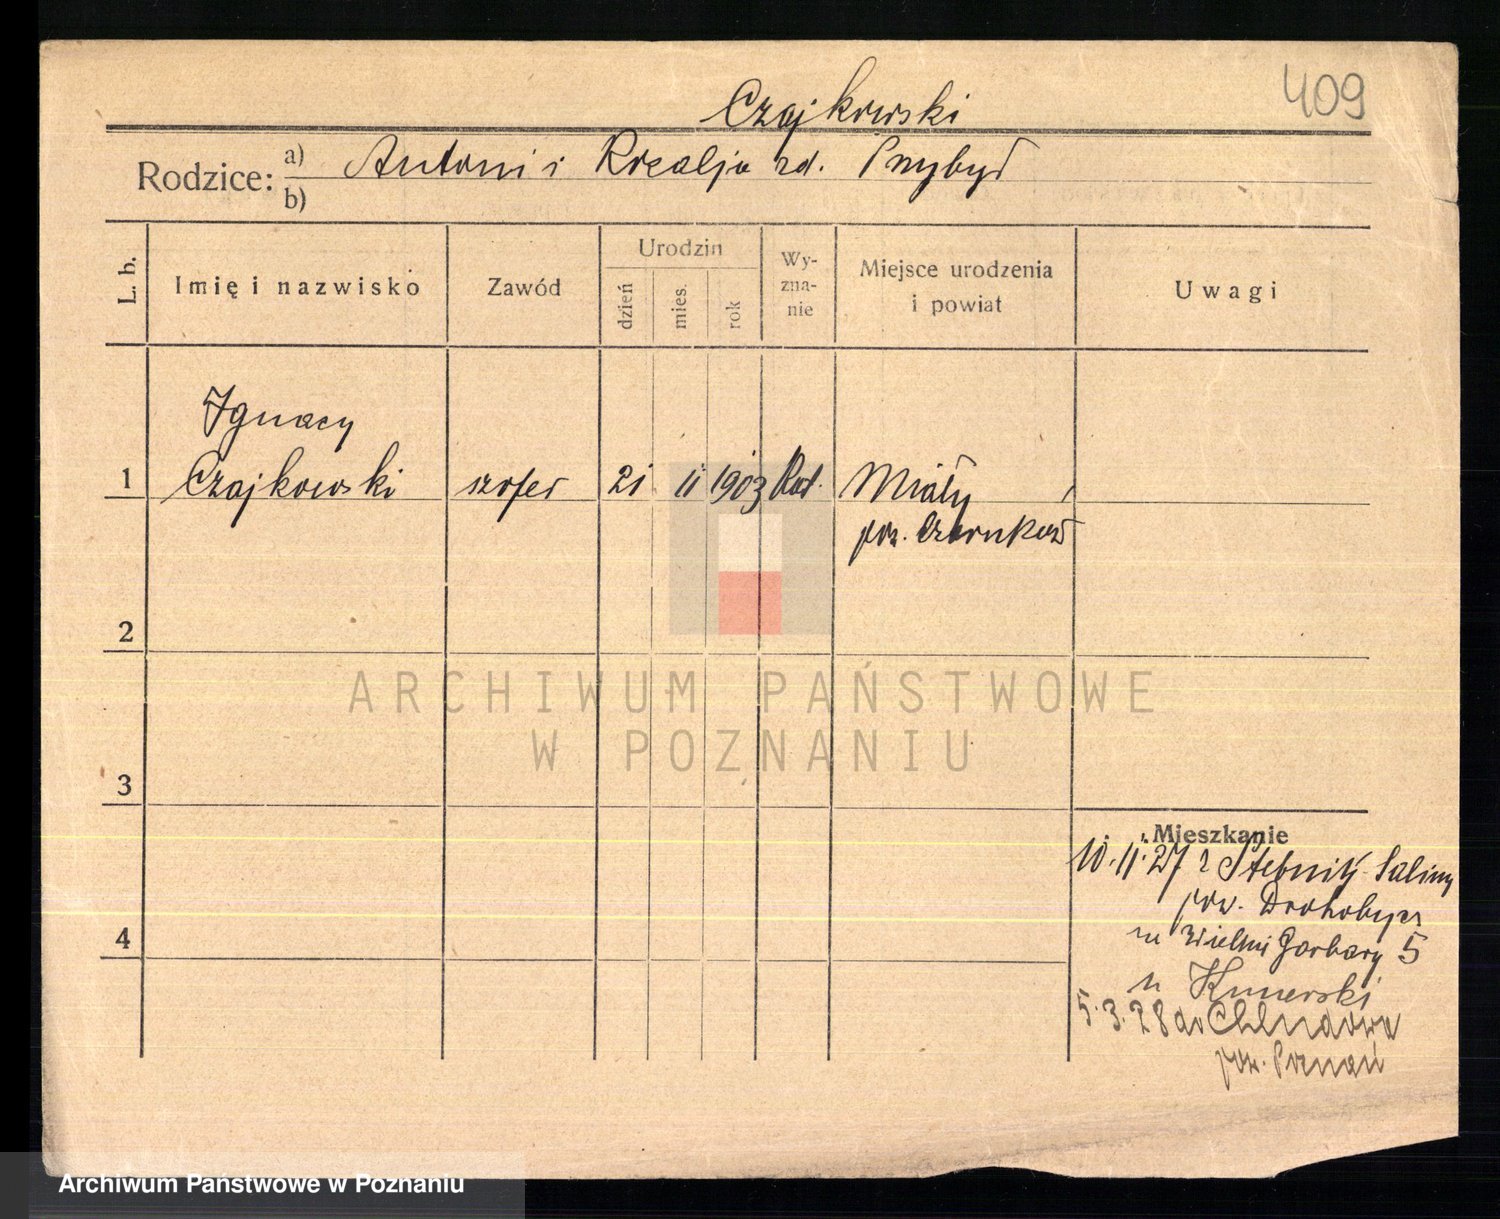 409
Czajkowski
Rodzice: a) Antoni i Rozalja zd. Przybył
b)
L. b.
Imię i nazwisko
Zawód
Urodzin
dzień
mies.
rok
Wy-
zna-
nie
Miejsce urodzenia
i powiat
Uwagi
Ignacy
1 Czajkowski szofer 21 11 1903 Kat. Miały
pow. Czarnków
2
3
4
Mieszkanie
10.11.27 z Stebnik Saliny
pow. Drohobycz
na Wielkie Garbary 5
u
5.3.28 do Chludowo
pow. Poznań
ARCHIWUM PAŃSTWOWE
W POZNANIU
Archiwum Państwowe w Poznaniu